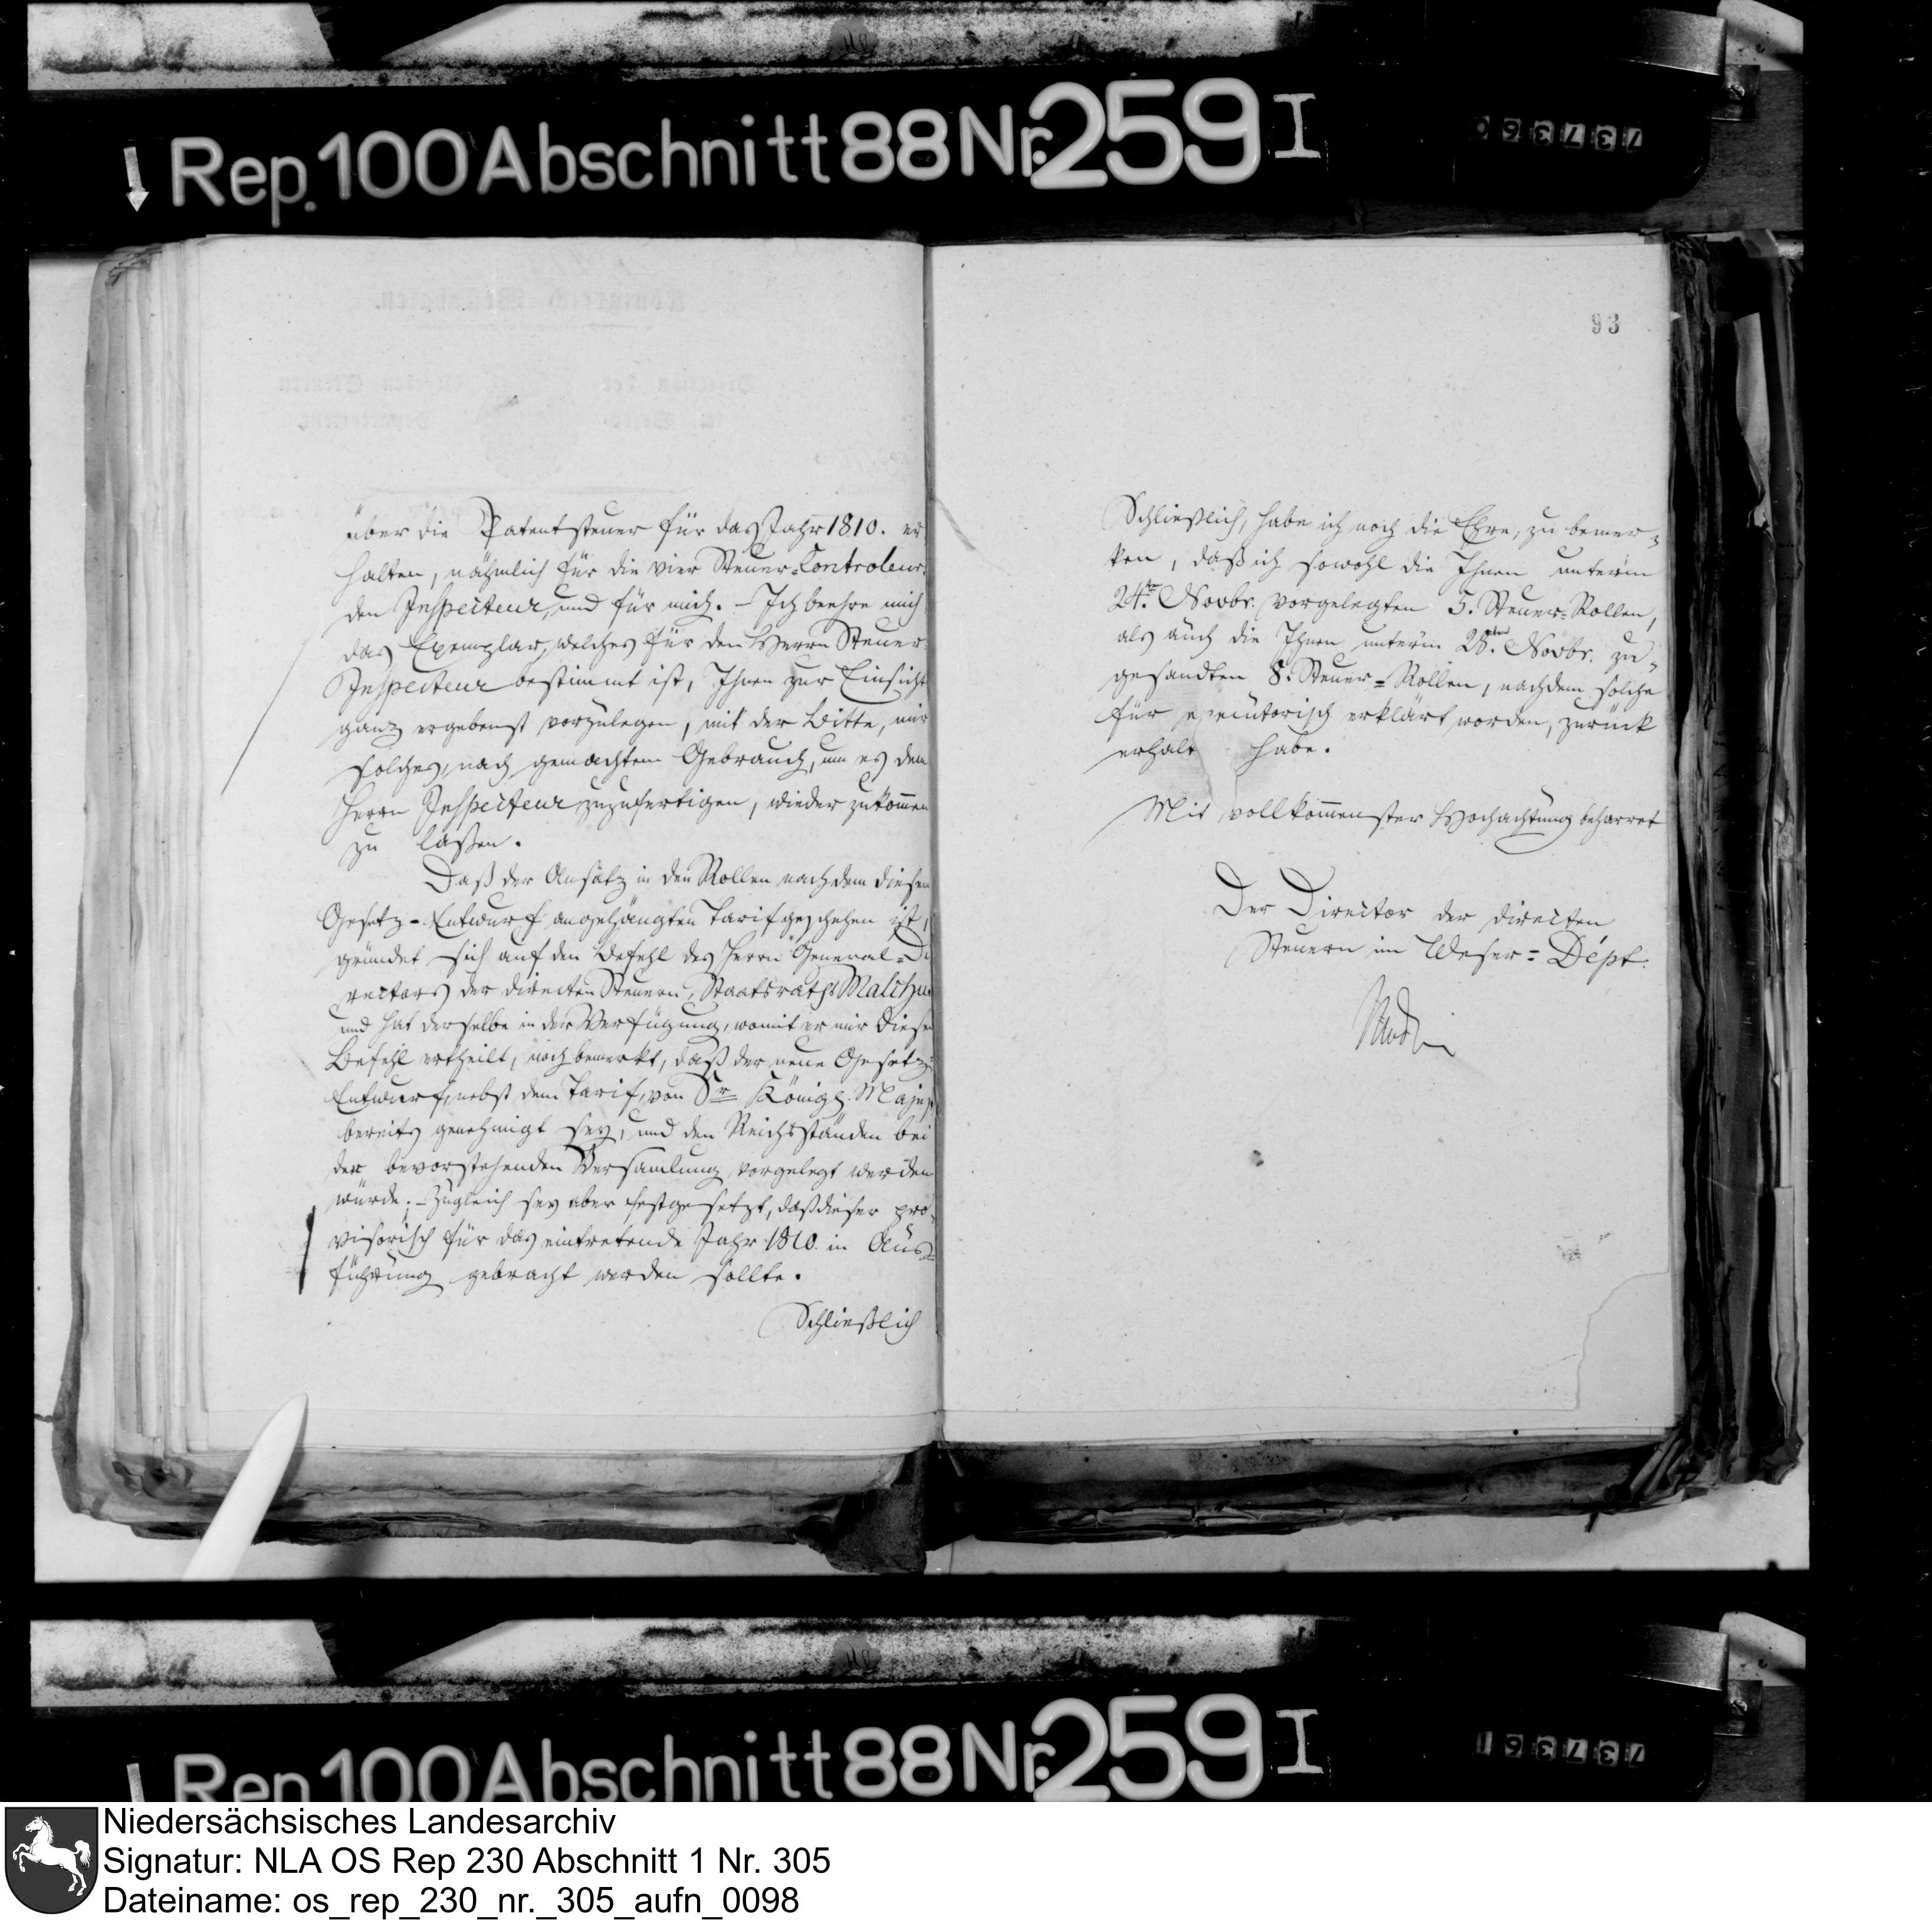 Rep. 100 Abschnitt 88 Nr. 259 I
737360
über die Patentsteuer für das Jahr 1810. er
halten, nähmlich für die vier Steuer-Controleurs
den Inspecteur, und für mich. - Ich beehre mich
das Exemplar, welches für den Herrn Steuer
Inspecteur bestimmt ist, Ihnen zur Einsicht
ganz ergebenst vorzulegen, mit der Bitte, mir
solches, nach gemachtem Gebrauch, um es dem
Herrn Inspecteur zuzufertigen, wieder zukommen
zu laßen.
Daß der Ansatz in den Rollen nach dem diesem
Gesetz-Entwurf angehängten Tarif geschehen ist,
gründet sich auf den Befehl des Herrn General-Di
rectors der directen Steuern, Staatsraths Malchus
und hat derselbe in der Verfügung, womit er mir diesen
Befehl ertheilt, noch bemerkt, daß der neue Gesetz-
Entwurf, nebst dem Tarif, von Sr Königl. Majest
bereits genehmigt sey, und den Reichsständen bei
der bevorstehenden Versamlung vorgelegt werden
würde; - Zugleich sey aber festgesetzt, daß dieser pro
visorisch für das eintretende Jahr 1810. in Aus-
führung gebracht werden sollte.
Schließlich
93
Schließlich, habe ich noch die Ehre, zu bemer-
ken, daß ich sowohl die Ihnen unterm
24ten Novbr. vorgelegten 5. Steuer-Rollen,
als auch die Ihnen unterm 28. Novbr. zu-
gesandten 8. Steuer-Rollen, nachdem solche
für executorisch erklärt worden, zurück
erhalt habe.
Mit vollkommenster Hochachtung beharret
Der Director der directen
Steuern im Weser-Dépt.
Rep. 100 Abschnitt 88 Nr. 259 I
737361
Niedersächsisches Landesarchiv
Signatur: NLA OS Rep 230 Abschnitt 1 Nr. 305
Dateiname: os_rep_230_nr._305_aufn_0098